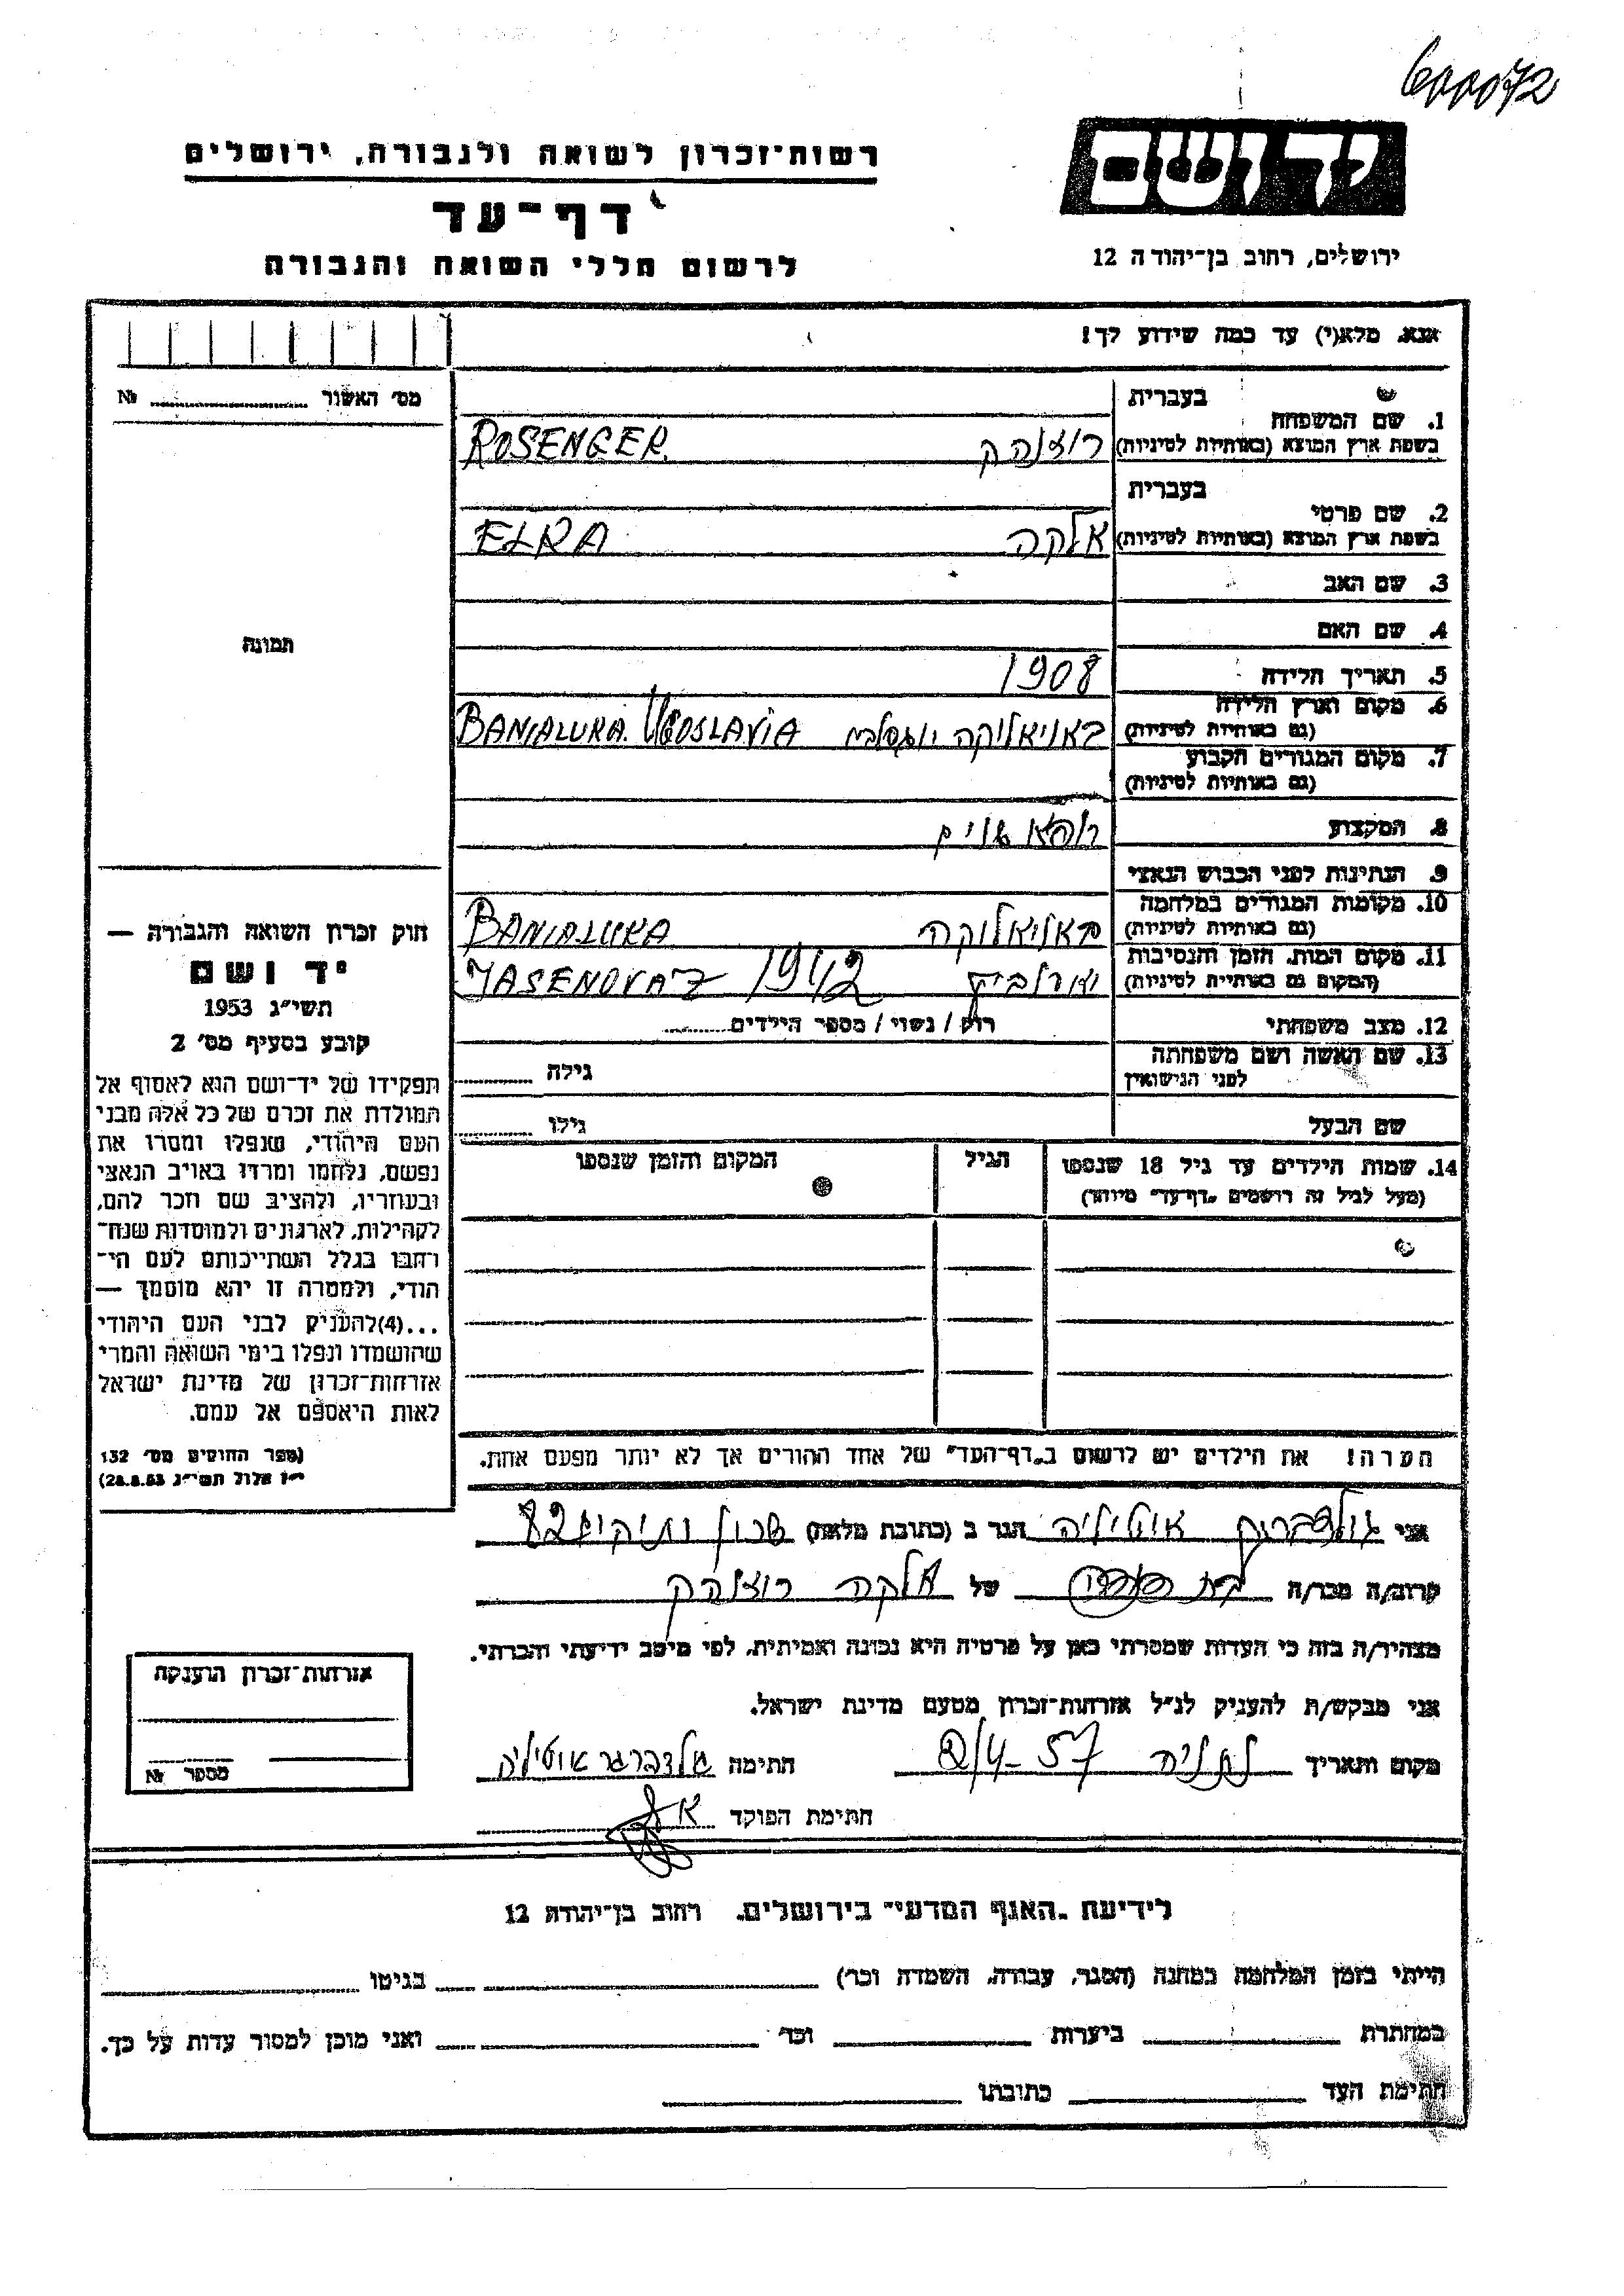 600072
יד ושם
ירושלים, רחוב בן־יהודה 12
רשות־זכרון לשואה ולגבורה, ירושלים
דף־עד
לרשום חללי השואה והגבורה
אנא, מלא(י) עד כמה שידוע לך!
מס׳ האשור № 
בעברית
1. שם המשפחה
בשפת ארץ המוצא (באותיות לטיניות)
ROSENGER
בעברית
2. שם פרטי
בשפת ארץ המוצא (באותיות לטיניות) אלקה ELRA
3. שם האב
4. שם האם
תמונה
5. תאריך הלידה 1908
6. מקום וארץ הלידה
(גם באותיות לטיניות) באניאלוקה BANIALUKA. UGOSLAVIA
7. מקום המגורים הקבוע
(גם באותיות לטיניות)
8. המקצוע רופא שנים
9. הנתינות לפני הכבוש הנאצי
10. מקומות המגורים במלחמה
(גם באותיות לטיניות) באניאלוקה BANIALUKA
11. מקום המות, הזמן והנסיבות
(המקום גם באותיות לטיניות) JASENOVAZ 1942
12. מצב משפחתי רוק / נשוי / מספר הילדים
13. שם האשה ושם משפחתה
לפני הנישואין גילה
שם הבעל גילו
14. שמות הילדים עד גיל 18 שנספו הגיל המקום והזמן שנספו
(מעל לגיל זה רושמים „דף־עד״ מיוחד)
חוק זכרון השואה והגבורה —
יד ושם
תשי״ג 1953
קובע בסעיף מס׳ 2
תפקידו של יד־ושם הוא לאסוף אל
המולדת את זכרם של כל אלה מבני
העם היהודי, שנפלו ומסרו את
נפשם, נלחמו ומרדו באויב הנאצי
ובעוזריו, ולהציב שם וזכר להם,
לקהילות, לארגונים ולמוסדות שנח־
רבו בגלל השתייכותם לעם הי־
הודי, ולמטרה זו יהא מוסמך —
...(4)להעניק לבני העם היהודי
שהושמדו ונפלו בימי השואה והמרי
אזרחות־זכרון של מדינת ישראל
לאות היאספם אל עמם.
(ספר החוקים מס׳ 132
י״ז אלול תשי״ג 28.8.53)
הערה! את הילדים יש לרשום ב„דף־העד״ של אחד ההורים אך לא יותר מפעם אחת.
אני גולדברגר אוטיליה הגר ב (כתובת מלאה) שכון ותיקים 82
קרוב/ה מכר/ה של אלקה
מצהיר/ה בזה כי העדות שמסרתי כאן על פרטיה היא נכונה ואמיתית, לפי מיטב ידיעתי והכרתי.
אני מבקש/ת להעניק לנ״ל אזרחות־זכרון מטעם מדינת ישראל.
מקום ותאריך נתניה 2/4-57 חתימה גולדברגר אוטיליה
חתימת הפוקד
אזרחות־זכרון הוענקה
מספר №
לידיעת „האגף המדעי״ בירושלים, רחוב בן־יהודה 12
הייתי בזמן המלחמה במחנה (הסגר, עבודה, השמדה וכו׳) בגיטו
במחתרת ביערות וכו׳ ואני מוכן למסור עדות על כך.
חתימת העד כתובתו